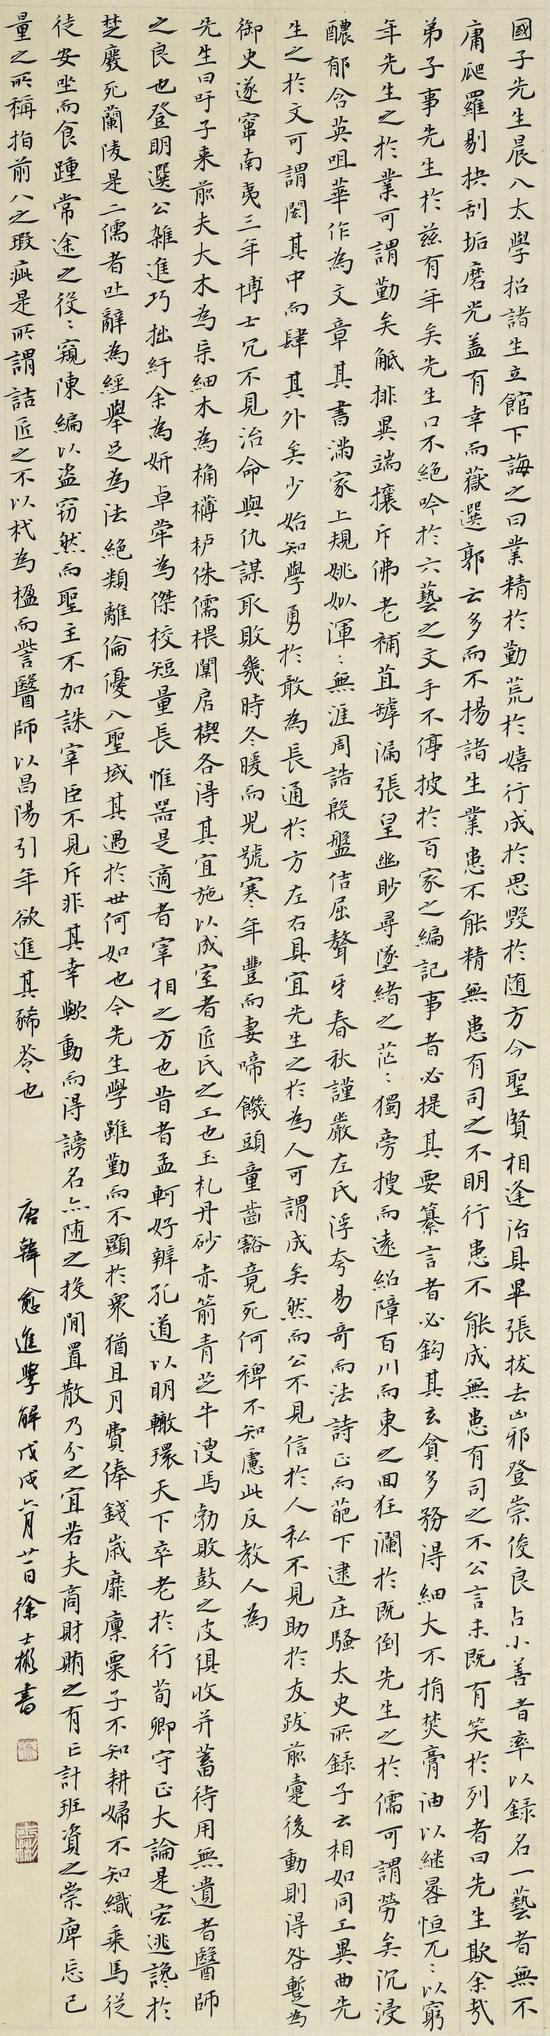 國子先生晨入太學招諸生立館下誨之曰業精於勤荒於嬉行成於思毁於随方今聖賢相逢治具畢張拔去凶邪登崇俊良占小善者率以録名一藝者無不
庸爬羅剔抉刮垢磨光盖有幸而獲選郭云多而不揚諸生業患不能精無患有司之不明行患不能成無患有司之不公言未既有笑於列者曰先生欺余哉
弟子事先生於兹有年矣先生口不絕吟於六藝之文手不停披於百家之編記事者必提其要纂言者必鈎其玄貪多務得細大不捐焚膏油以継晷恒兀:以窮
年先生之於業可謂勤矣觝排異端攘斥佛老補苴罅漏張皇幽眇尋墜緒之茫:獨旁搜而遠紹障百川而東之回狂瀾於既倒先生之於儒可謂勞矣沉浸
醲郁含英咀華作為文章其書滿家上規姚姒渾:無涯周誥殷盤佶屈聱牙春秋謹嚴左氏浮夸易奇而法詩正而葩下逮庄騷太史所録子云相如同工異曲先
生之於文可謂閎其中而肆其外矣少始知學勇於敢為長通於方左右具宜先生之於為人可謂成矣然而公不見信於人私不見助於友跋前疐後動則得咎暫為
御史遂窜南夷三年博士冗不見治命與仇謀取敗幾時冬暖而兒號寒年豐而妻啼饑頭童齒豁竟死何裨不知慮此反教人為
先生曰吁子来前夫大木為杗細木為桷欂栌侏儒椳闑扂楔各得其宜施以成室者匠氏之工也玉札丹砂赤箭青芝牛溲馬勃敗鼓之皮俱收并蓄待用無遺者醫師
之良也登明選公雜進巧拙紆余為妍卓犖為傑校短量長惟器是適者宰相之方也昔者孟軻好辨孔道以明轍環天下卒老於行荀卿守正大論是宏逃讒於
楚廢死蘭陵是二儒者吐辭為經舉足為法絕類離倫優入聖域其遇於世何如也今先生學雖勤而不顯於衆猶且月費俸錢歲靡廩粟子不知耕婦不知織乘馬從
徒安坐而食踵常途之役:窺陳編以盗窃然而聖主不加誅宰臣不見斥非其幸歟動而得謗名亦随之投閒置散乃分之宜若夫商財賄之有亡計班資之崇庳忘己
量之所稱指前人之瑕疵是所謂詰匠之不以杙為楹而訾醫師以昌陽引年欲進其豨苓也 唐韓愈進學解戊戌六月廿一日徐士彬書